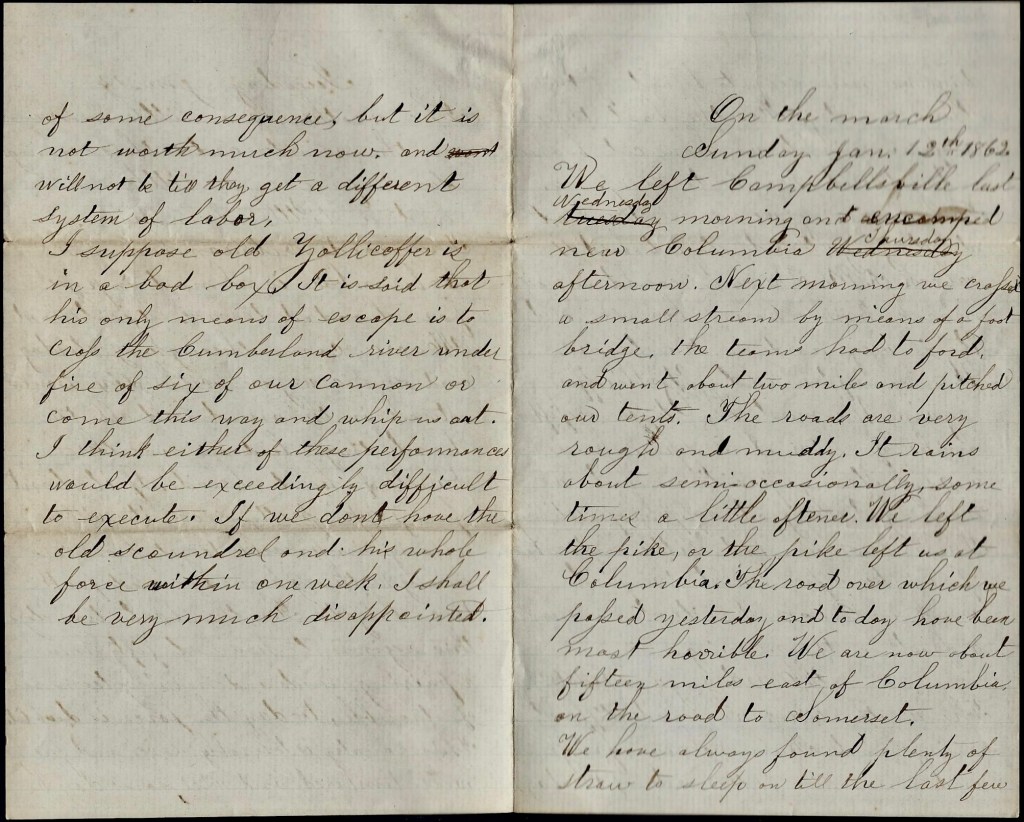 of some consequence, but it is
not worth much now. and went
will not be till they get a different
system of labor,
I suppose old Zollicoffer is
in a bad box. It is said that
his only means of escape is to
cross the Cumberland river under
fire of six of our cannon or
come this way and whip us out.
I think either of these performances
would be exceedingly difficult
to execute. If we dont have the
old scoundrel and his whole
force within one week. I shall
be very much disappointed.
On the march
Sunday Jan. 12th 1862.
We left Campbellsville last
Wednesday
tuesday morning and encamped
Thursday
near Columbia Wednesday
afternoon. Next morning we crossed
a small stream by means of a foot
bridge. the teams had to ford.
and went about two miles and pitched
our tents. The roads are very
rough and muddy. It rains
about semi-occasionally, some
times a little oftener. We left
the pike, or the pike left us at
Columbia. The road over which we
passed yesterday and to day have been
most horrible. We are now about
fifteen miles east of Columbia
on the road to Somerset.
We have always found plenty of
straw to sleep on till the last few